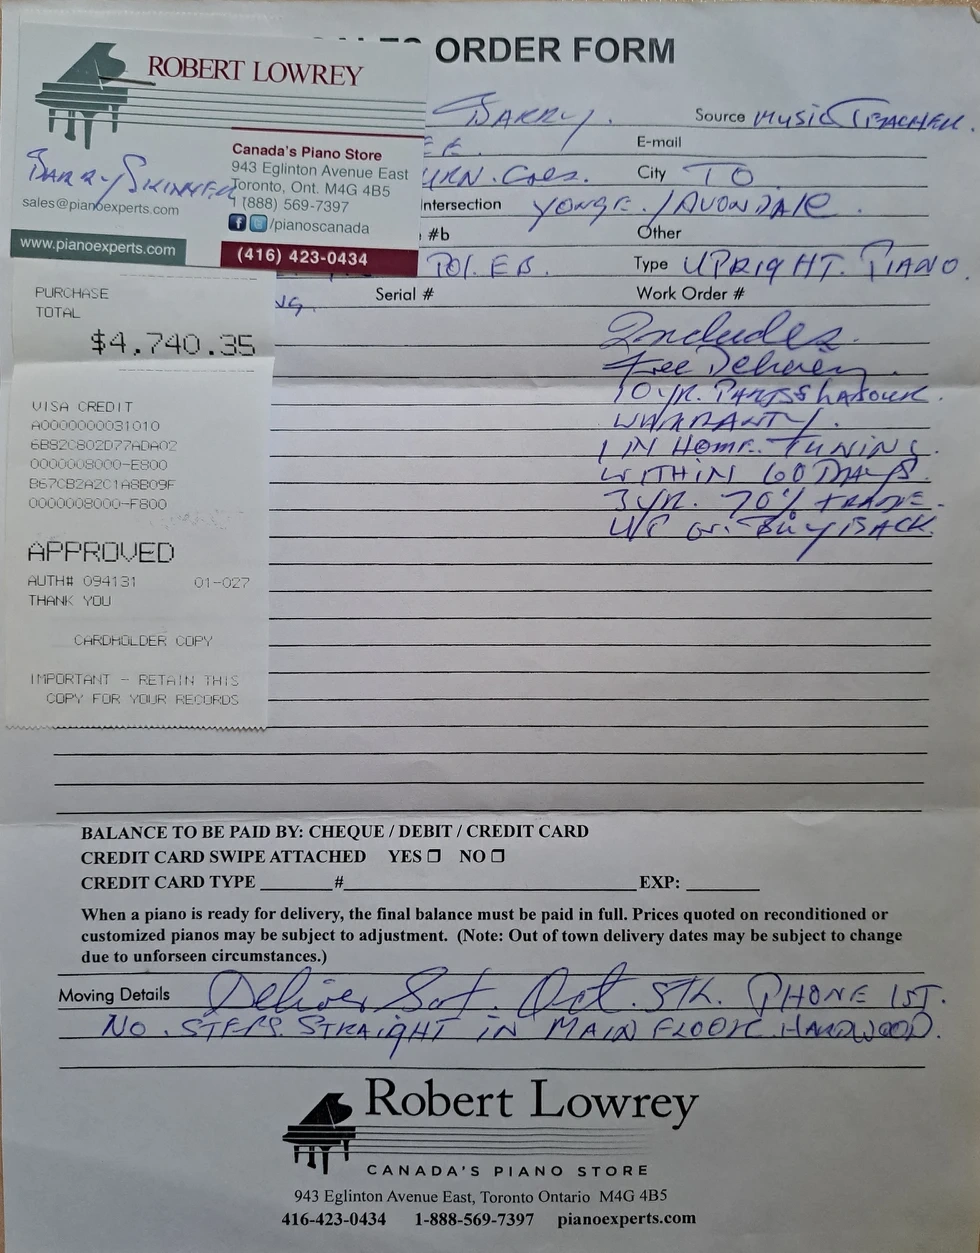 ORDER FORM
ROBERT LOWREY
Canada's Piano Store
943 Eglinton Avenue East
Toronto, Ont. M4G 4B5
1 (888) 569-7397
/pianoscanada
(416) 423-0434
BARRY SKINNER
sales@pianoexperts.com
www.pianoexperts.com
BARRY.
Source MUSIC TEACHER.
E-mail
City TO
Intersection YONGE. / AVONDALE.
#b
Other
Type UPRIGHT. PIANO.
Serial #
Work Order #
Includes.
Free Delivery.
10 YR. PARTS & LABOUR.
WARRANTY.
1 IN HOME. TUNING.
WITHIN 60 DAYS.
3 YR. 70% TRADE-
UP or. Buy BACK.
PURCHASE
TOTAL
$4,740.35
VISA CREDIT
A0000000031010
6B82C802D77ADA02
0000008000-E800
B67CB2A2C1A8B09F
0000008000-F800
APPROVED
AUTH# 094131 01-027
THANK YOU
CARDHOLDER COPY
IMPORTANT - RETAIN THIS
COPY FOR YOUR RECORDS
BALANCE TO BE PAID BY: CHEQUE / DEBIT / CREDIT CARD
CREDIT CARD SWIPE ATTACHED YES ☐ NO ☐
CREDIT CARD TYPE ________#________ EXP: ________
When a piano is ready for delivery, the final balance must be paid in full. Prices quoted on reconditioned or
customized pianos may be subject to adjustment. (Note: Out of town delivery dates may be subject to change
due to unforseen circumstances.)
Moving Details Deliver Sat. Oct. 5th. PHONE 1ST.
NO. STEPS. STRAIGHT IN MAIN FLOOR HARDWOOD.
Robert Lowrey
CANADA'S PIANO STORE
943 Eglinton Avenue East, Toronto Ontario M4G 4B5
416-423-0434 1-888-569-7397 pianoexperts.com